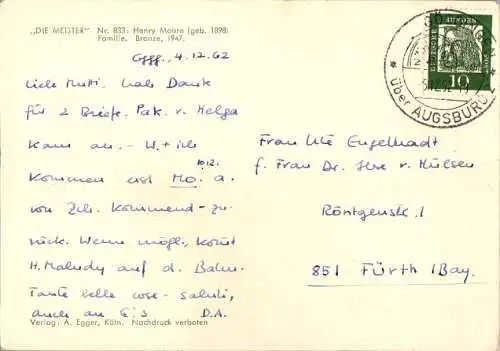 „DIE MEISTER“ Nr. 833: Henry Moore (geb. 1898)
Familie. Bronze, 1947.
Gggg., 4.12.62
Liebe Mutti. Viele Dank
für 2 Briefe. Pak. v. Helga
kam an. - W. + ich
10.12.
kommen erst Mo. a.
von Zch. kommend - zu-
rück. Wenn mögl., kommt
H. auf d. Bahn.
Tante belle cose - saluti,
auch an G's D.A.
Verlag: A. Egger, Köln. Nachdruck verboten
GÖGGINGEN
über AUGSBURG 2
DEUTSCHE BUNDESPOST
10
Frau Ute Engelhadt
f. Frau Dr. Ilse v. Hülsen
Röntgenstr. 1
851 Fürth / Bay.